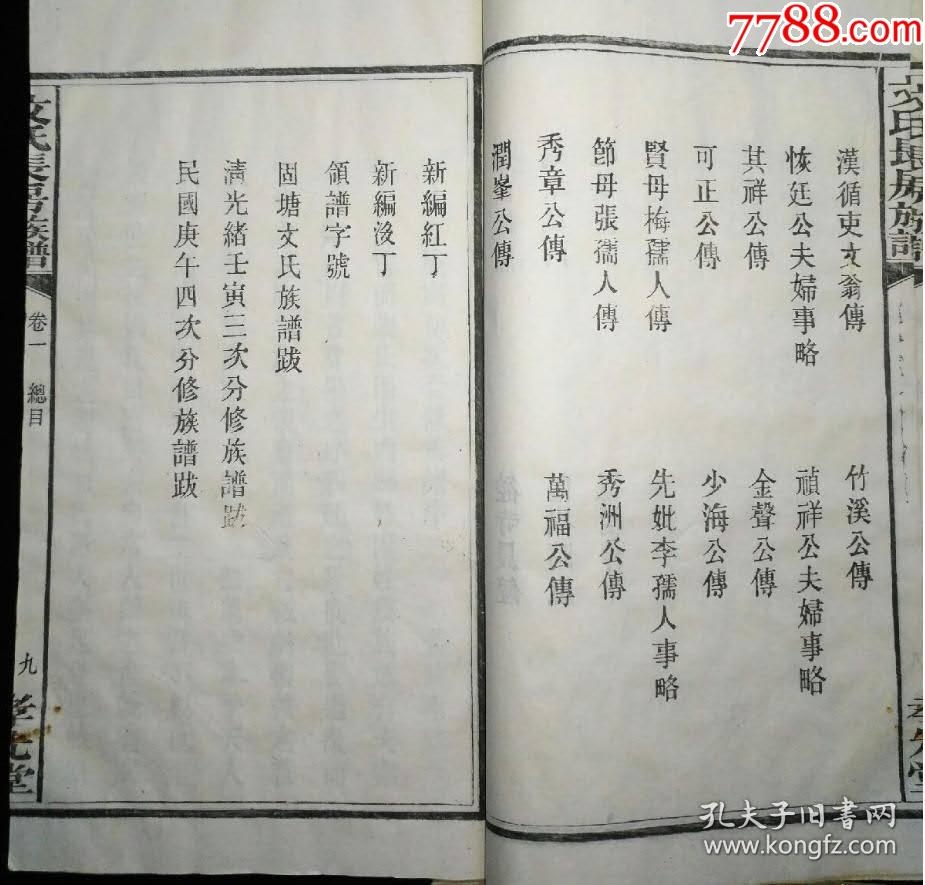 7788.com
文氏長房族譜
漢循吏文翁傳
竹溪公傳
恢廷公夫婦事略
禎祥公夫婦事略
其祥公傳
金聲公傳
可正公傳
少海公傳
賢母梅孺人傳
先妣李孺人事略
節母張孺人傳
秀洲公傳
秀章公傳
萬福公傳
潤峯公傳
新編紅丁
新編沒丁
領譜字號
固塘文氏族譜跋
清光緒壬寅三次分修族譜跋
民國庚午四次分修族譜跋
文氏長房族譜
卷一 總目
九
孝先堂
孔夫子旧书网
www.kongfz.com